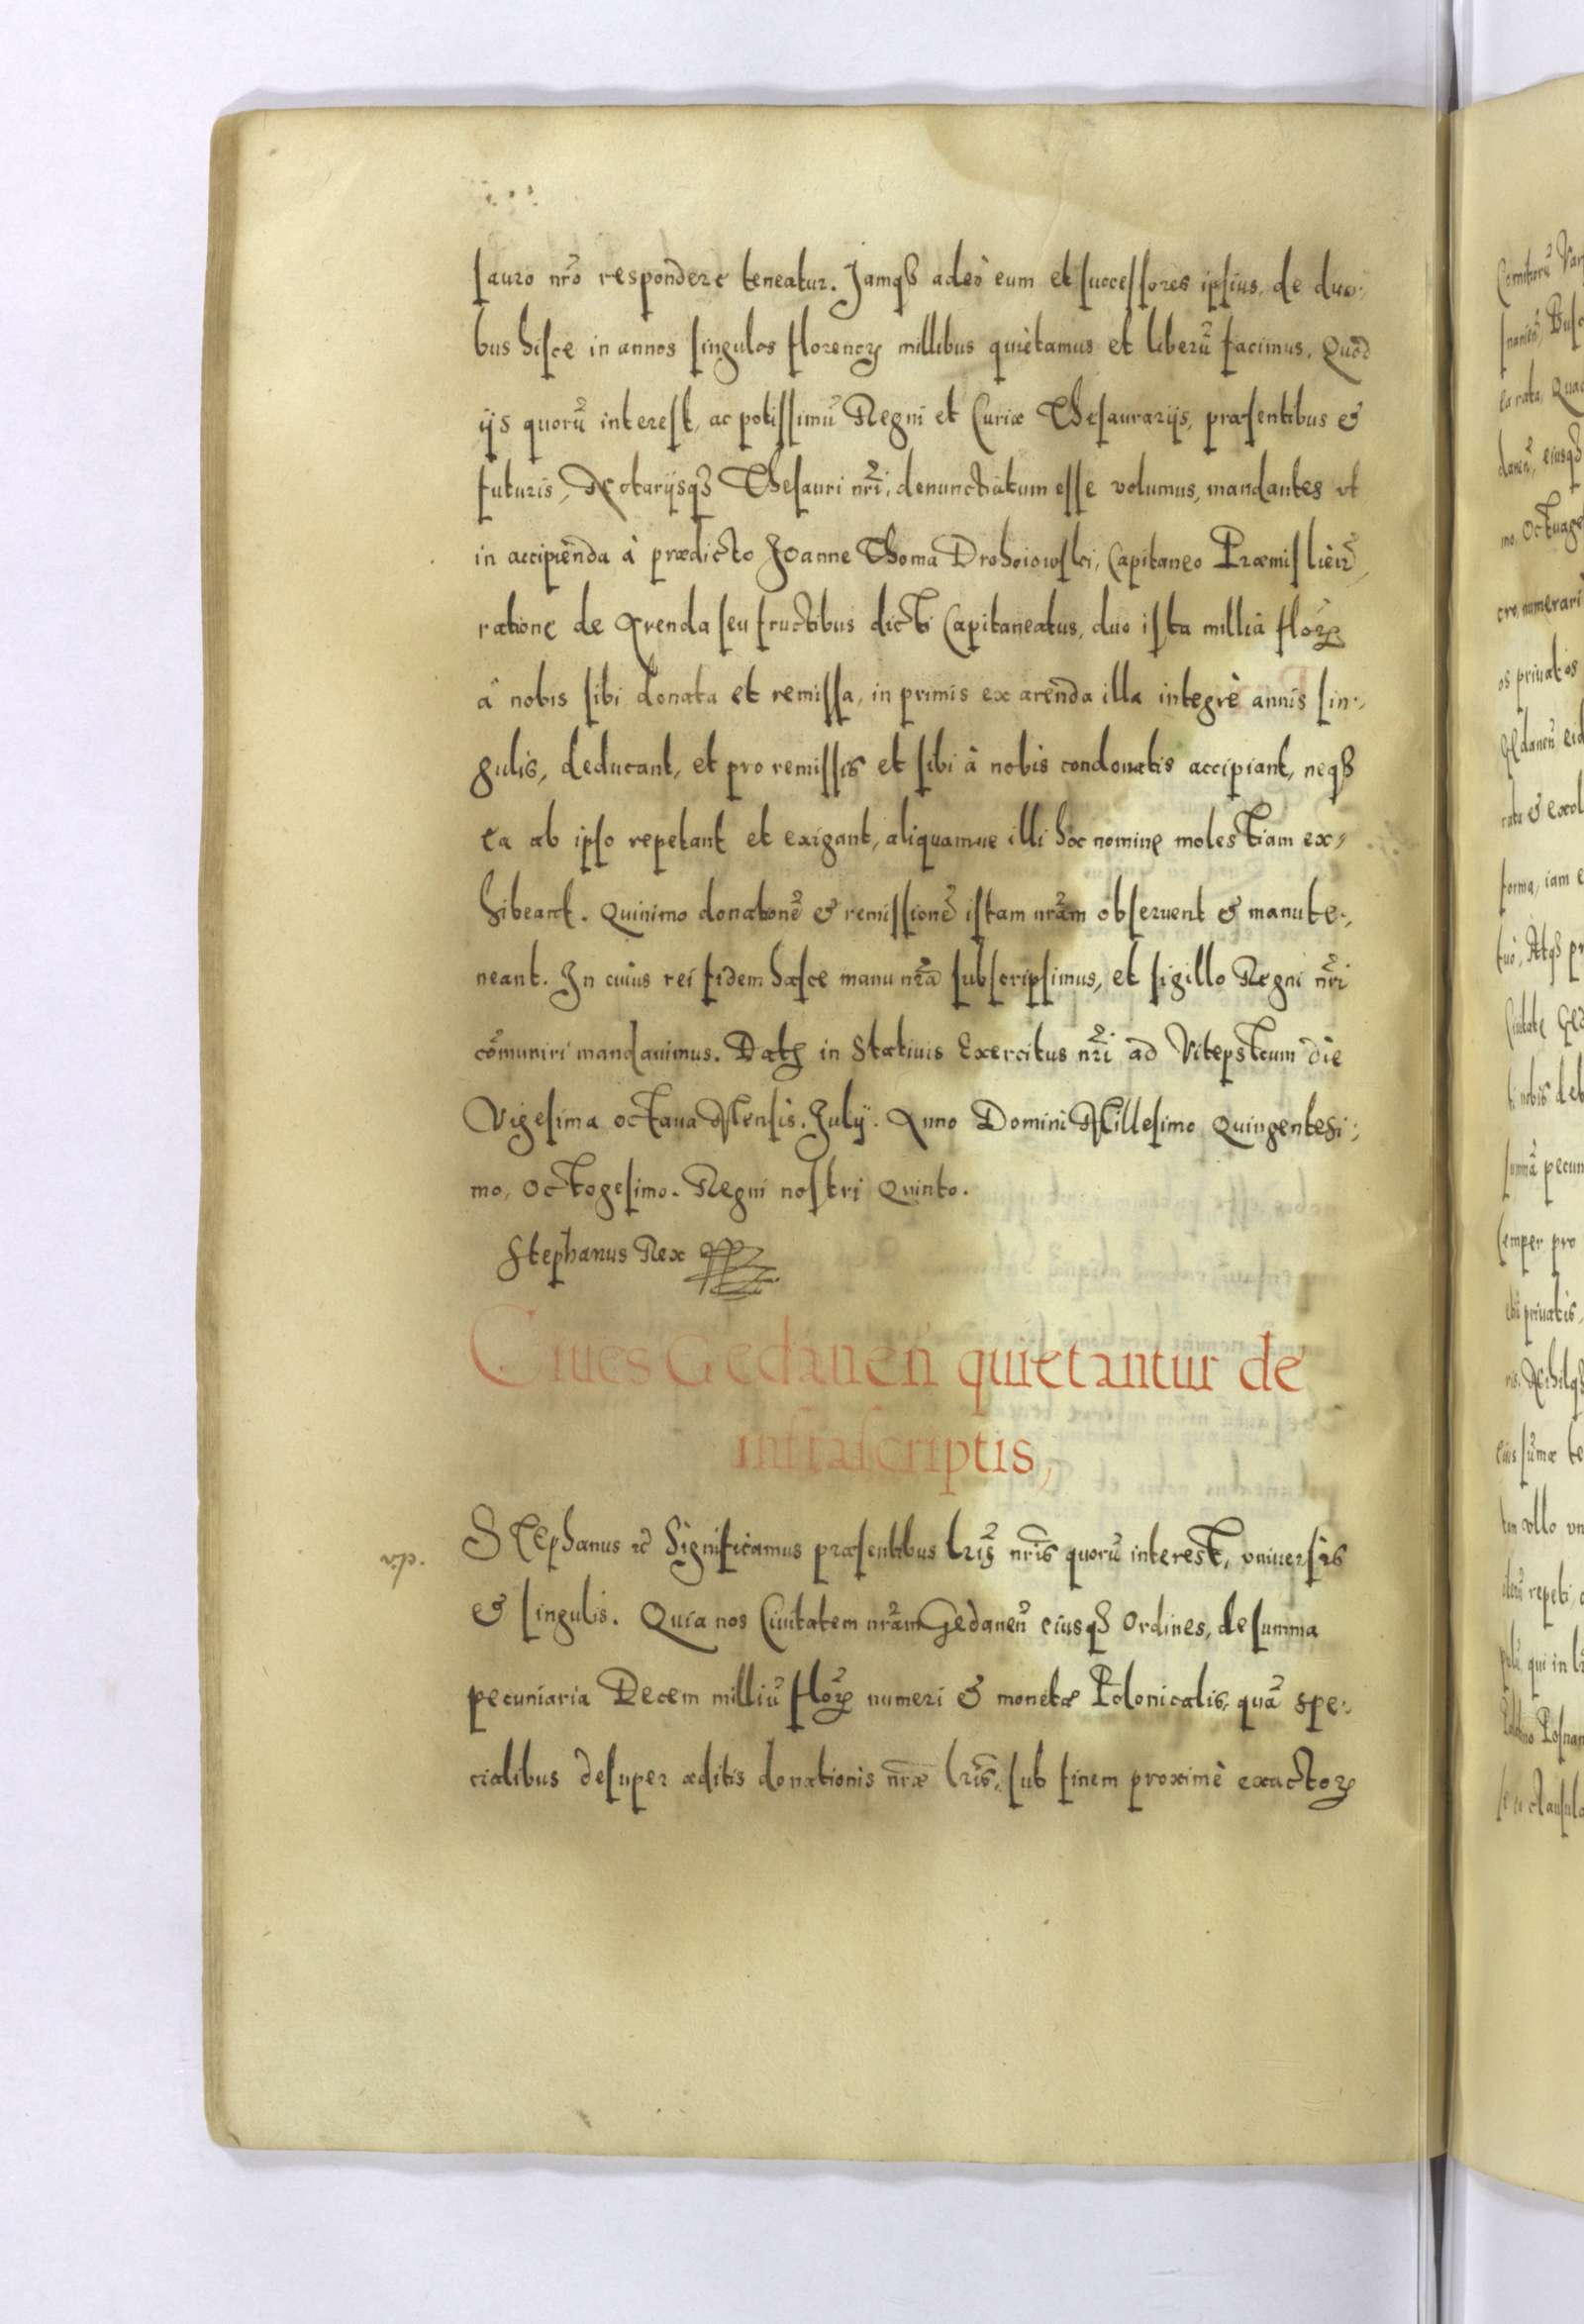 sauro nr̃o respondere teneatur. Jamqȝ adeò eum et successores ipsius, de duo-
bus hisce in annos singulos florenoꝝ millibus quietamus et liberũ facimus. Quod
ijs quorũ interest, ac potissimũ Regni et Curiæ Thesaurarijs, præsentibus &
futuris, Notarijsqȝ Thesauri nr̃i, denunctiatum esse volumus, mandantes vt
in accipienda à prædicto Joanne Thoma Drohoiowski, Capitaneo Præmislieñ,
ratione de Arenda seu fructibus dicti Capitaneatus, duo ista millia floꝝ
à nobis sibi donata et remissa, in primis ex arenda illa integrè annis sin-
gulis, deducant, et pro remissis et sibi à nobis condonatis accipiant, neqȝ
ea ab ipso repetant et exigant, aliquamue illi hoc nomine molestiam ex-
hibeant. Quinimo donationẽ & remissionẽ istam nr̃am obseruent & manute-
neant. In cuius rei fidem hasce manu nr̃a subscripsimus, et sigillo Regni nr̃i
cõmuniri mandauimus. Datȝ in Statiuis Exercitus nr̃i ad Vitepscum die
Vigesima octaua Mensis. Julij. Anno Domini Millesimo Quingentesi-
mo, Octogesimo. Regni nostri Quinto.
Stephanus Rex
Ciues Gedaneñ quietantur de
infrascriptis,
vp.
Stephanus etc̃ Significamus præsentibus lr̃is nr̃is quorũ interest, vniuersis
& singulis. Quia nos Ciuitatem nr̃am Gedaneñ eiusqȝ Ordines, de summa
pecuniaria Decem milliũ floꝝ numeri & monetæ Polonicalis, quã spe-
cialibus desuper æditis donationis nr̃æ lr̃is, sub finem proximè exactoꝝ